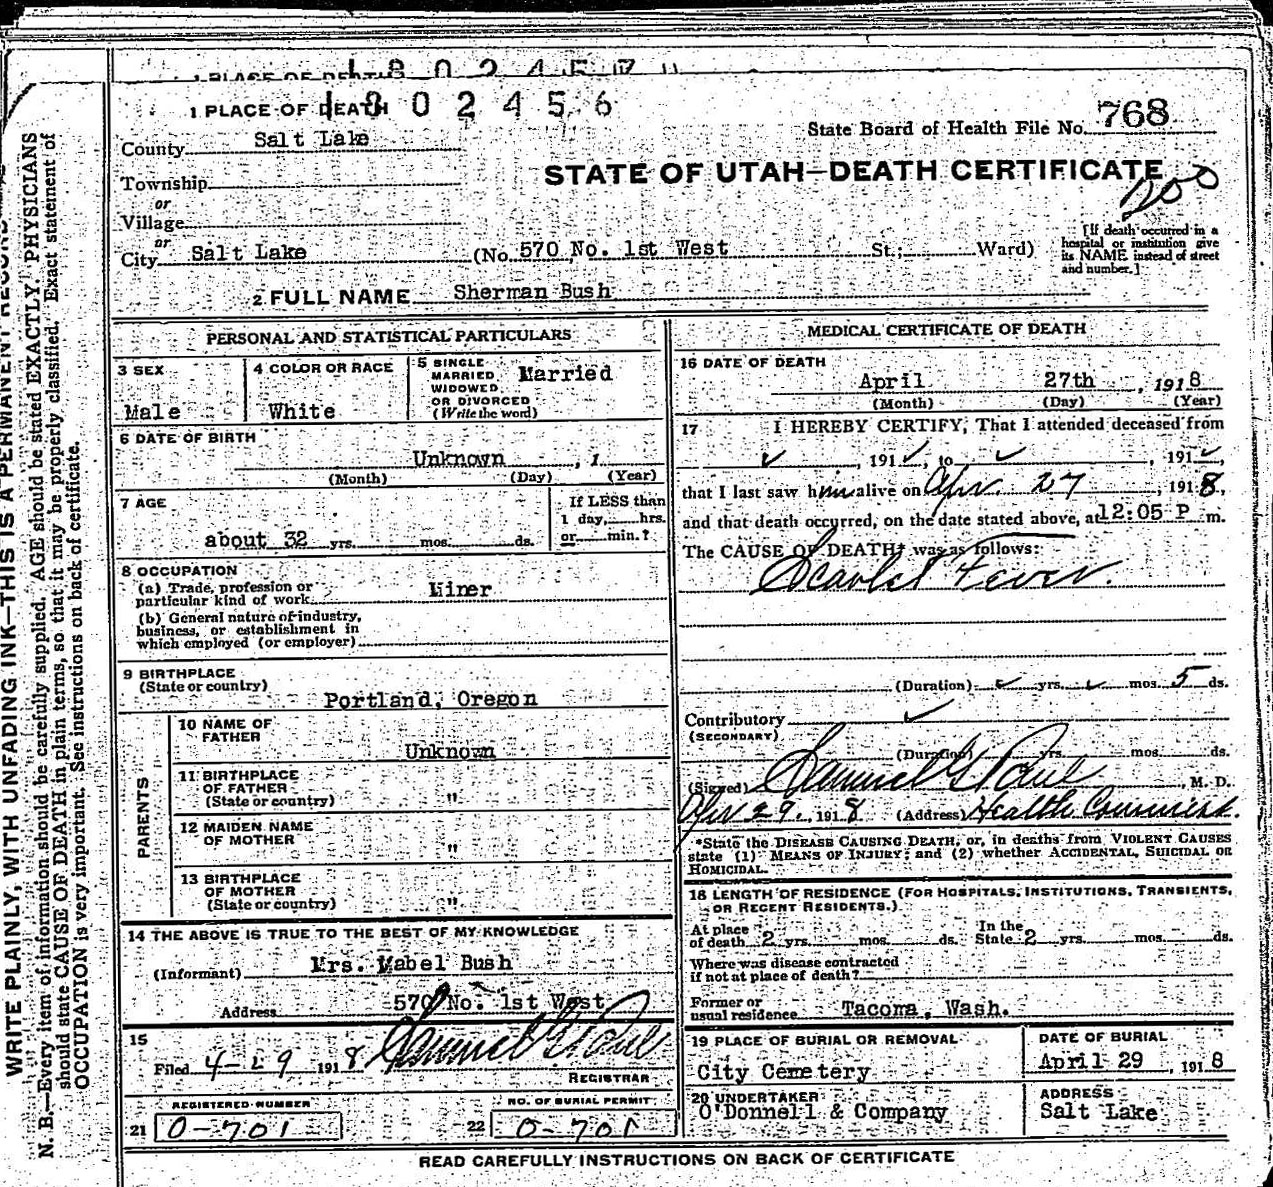 1 PLACE OF DEATH 1802456
State Board of Health File No. 768
County Salt Lake
STATE OF UTAH—DEATH CERTIFICATE
Township
or
Village
or
City Salt Lake (No. 570 No. 1st West St.; Ward)
[If death occurred in a hospital or institution give its NAME instead of street and number.]
2 FULL NAME Sherman Bush
PERSONAL AND STATISTICAL PARTICULARS
3 SEX
Male
4 COLOR OR RACE
White
5 SINGLE
MARRIED
WIDOWED
OR DIVORCED
(Write the word)
Married
6 DATE OF BIRTH
Unknown , 1
(Month) (Day) (Year)
7 AGE
about 32 yrs. mos. ds.
If LESS than
1 day, hrs.
or min.?
8 OCCUPATION
(a) Trade, profession or
particular kind of work Miner
(b) General nature of industry,
business, or establishment in
which employed (or employer)
9 BIRTHPLACE
(State or country)
Portland, Oregon
PARENTS
10 NAME OF
FATHER
Unknown
11 BIRTHPLACE
OF FATHER
(State or country) "
12 MAIDEN NAME
OF MOTHER "
13 BIRTHPLACE
OF MOTHER
(State or country) "
14 THE ABOVE IS TRUE TO THE BEST OF MY KNOWLEDGE
(Informant) Mrs. Mabel Bush
Address 570 No. 1st West
15
Filed 4-29 1918 Samuel G Paul
REGISTRAR
REGISTERED NUMBER
21 0-701
NO. OF BURIAL PERMIT
22 0-701
MEDICAL CERTIFICATE OF DEATH
16 DATE OF DEATH
April 27th , 1918
(Month) (Day) (Year)
17 I HEREBY CERTIFY, That I attended deceased from
✓ , 191✓, to ✓ , 191✓,
that I last saw him alive on Apr. 27 , 1918,
and that death occurred, on the date stated above, at 12:05 P m.
The CAUSE OF DEATH* was as follows:
Scarlet Fever.
(Duration) ✓ yrs. ✓ mos. 5 ds.
Contributory ✓
(SECONDARY)
(Duration) yrs. mos. ds.
(Signed) Samuel G Paul , M. D.
Apr 29, 1918 (Address) Health Commiss.
*State the DISEASE CAUSING DEATH, or, in deaths from VIOLENT CAUSES
state (1) MEANS OF INJURY; and (2) whether ACCIDENTAL, SUICIDAL OR
HOMICIDAL.
18 LENGTH OF RESIDENCE (FOR HOSPITALS, INSTITUTIONS, TRANSIENTS,
OR RECENT RESIDENTS.)
At place
of death 2 yrs. mos. ds.
In the
State 2 yrs. mos. ds.
Where was disease contracted
if not at place of death?
Former or
usual residence Tacoma, Wash.
19 PLACE OF BURIAL OR REMOVAL
City Cemetery
DATE OF BURIAL
April 29 , 1918
20 UNDERTAKER
O'Donnell & Company
ADDRESS
Salt Lake
READ CAREFULLY INSTRUCTIONS ON BACK OF CERTIFICATE
WRITE PLAINLY, WITH UNFADING INK—THIS IS A PERMANENT RECORD
N. B.—Every item of information should be carefully supplied. AGE should be stated EXACTLY. PHYSICIANS
should state CAUSE OF DEATH in plain terms, so that it may be properly classified. Exact statement of
OCCUPATION is very important. See instructions on back of certificate.